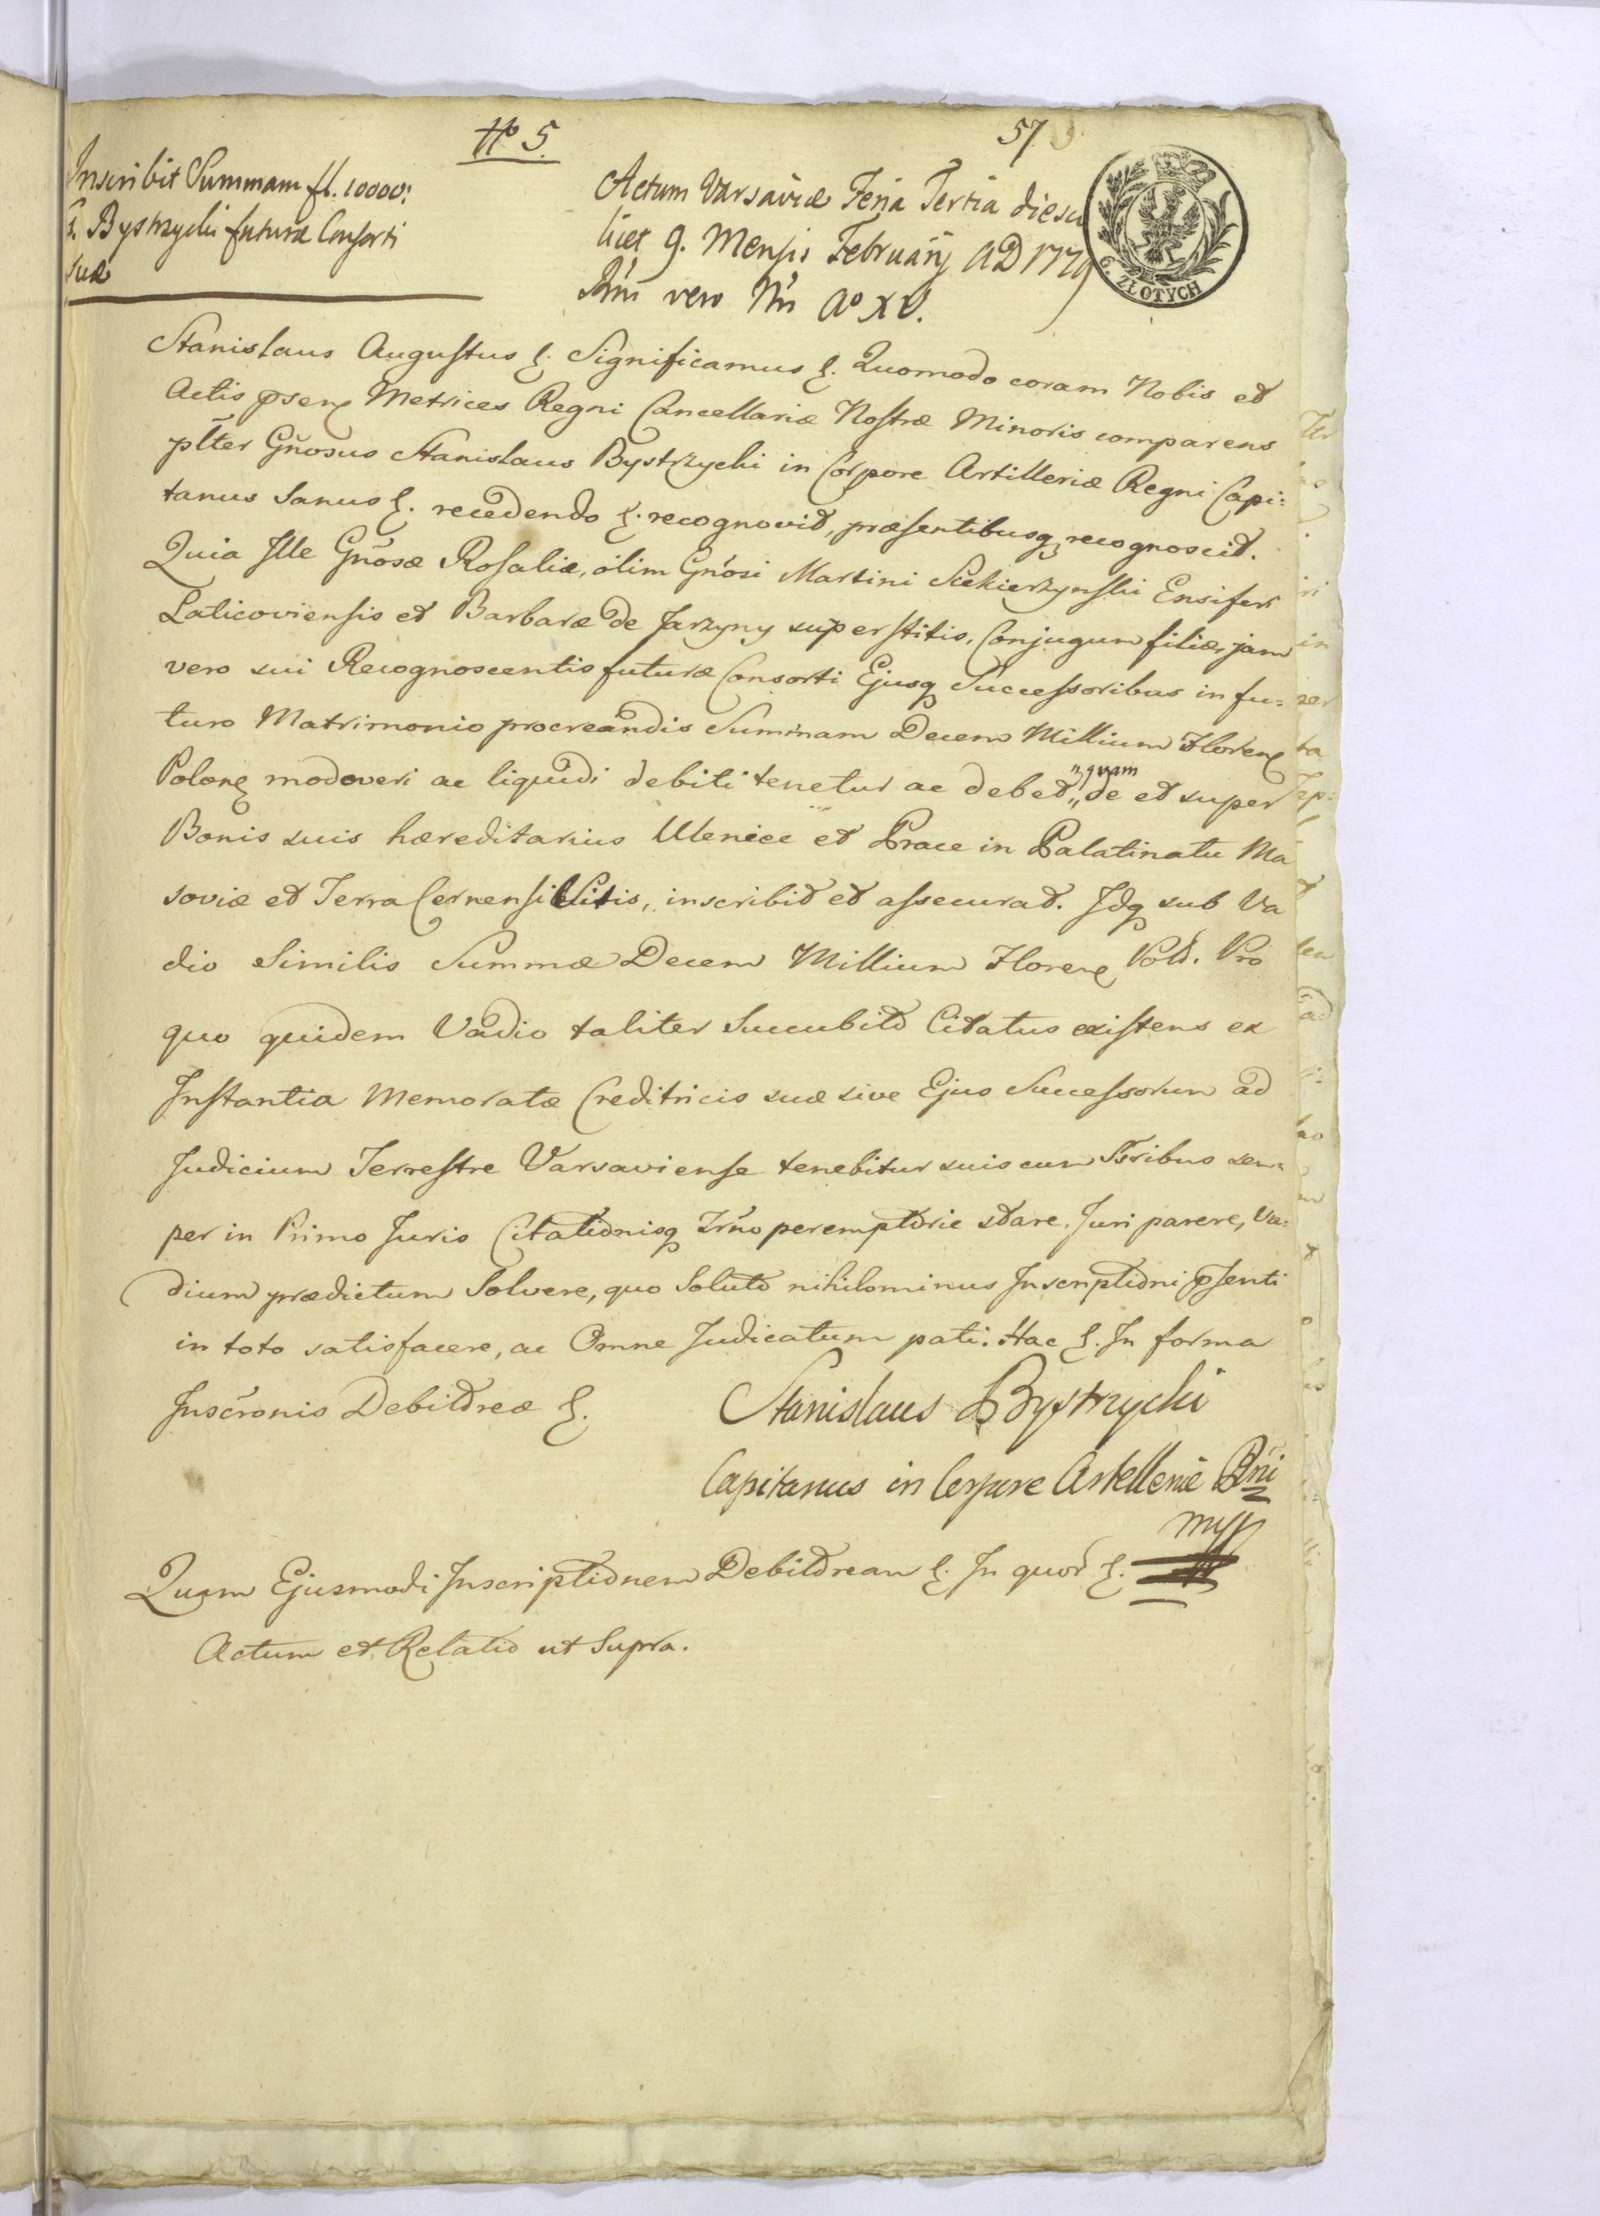 No 5.
57
Inscribit Summam fl. 10000:
G. Bystrzycki futuræ Consorti
suæ
Actum Varsaviæ Feria Tertia die sci
licet 9. Mensis Februarij AD 1779
Rñi vero Nri Ao XV.
6. ZŁOTYCH
Stanislaus Augustus &. Significamus &. Quomodo coram Nobis et
Actis Metrices Regni Cancellariæ Nostræ Minoris comparens
plter Gñosus Stanislaus Bystrzycki in Corpore Artilleriæ Regni Capi:
taneus Sanus &. recedendo &. recognovit, præsentibusq recognoscit.
Quia Ille Gñosæ Rosaliæ, olim Gñosi Martini Siekierzynski Ensiferi
Laticoviensis et Barbaræ de Jarzyny superstitis, Conjugum filiæ, jam
vero sui Recognoscentis futuræ Consorti Ejusq Successoribus in fu:
turo Matrimonio procreandis Summam Decem Millium Floren
Polon modo veri ac liquidi debiti tenetur ac debet, de et super
quam
Bonis suis hæreditariis Uleniec et Prace in Palatinatu Ma
soviæ et Terra Cernensi Sitis, inscribit et assecurat. Idq sub Va
dio Similis Summæ Decem Millium Floren Pol. Pro
quo quidem Vadio taliter Succubito Citatus existens ex
Instantia Memoratæ Creditricis suæ sive Ejus Successorum ad
Judicium Terrestre Varsaviense tenebitur suis cum Ssribus sem:
per in Primo Juris Citationisq Trño peremptorie stare, Juri parere, Va:
dium prædictum Solvere, quo Soluto nihilominus Inscriptioni psenti
in toto satisfacere, ac Omne Judicatum pati. Hac &. In forma
Inscronis Debitoreæ &.
Stanislaus Bystrzycki
Capitanus in Corpore Artilleriæ Rni
mpp
Quam Ejusmodi Inscriptionem Debitoream &. In quor &.
Actum et Relatio ut Supra.